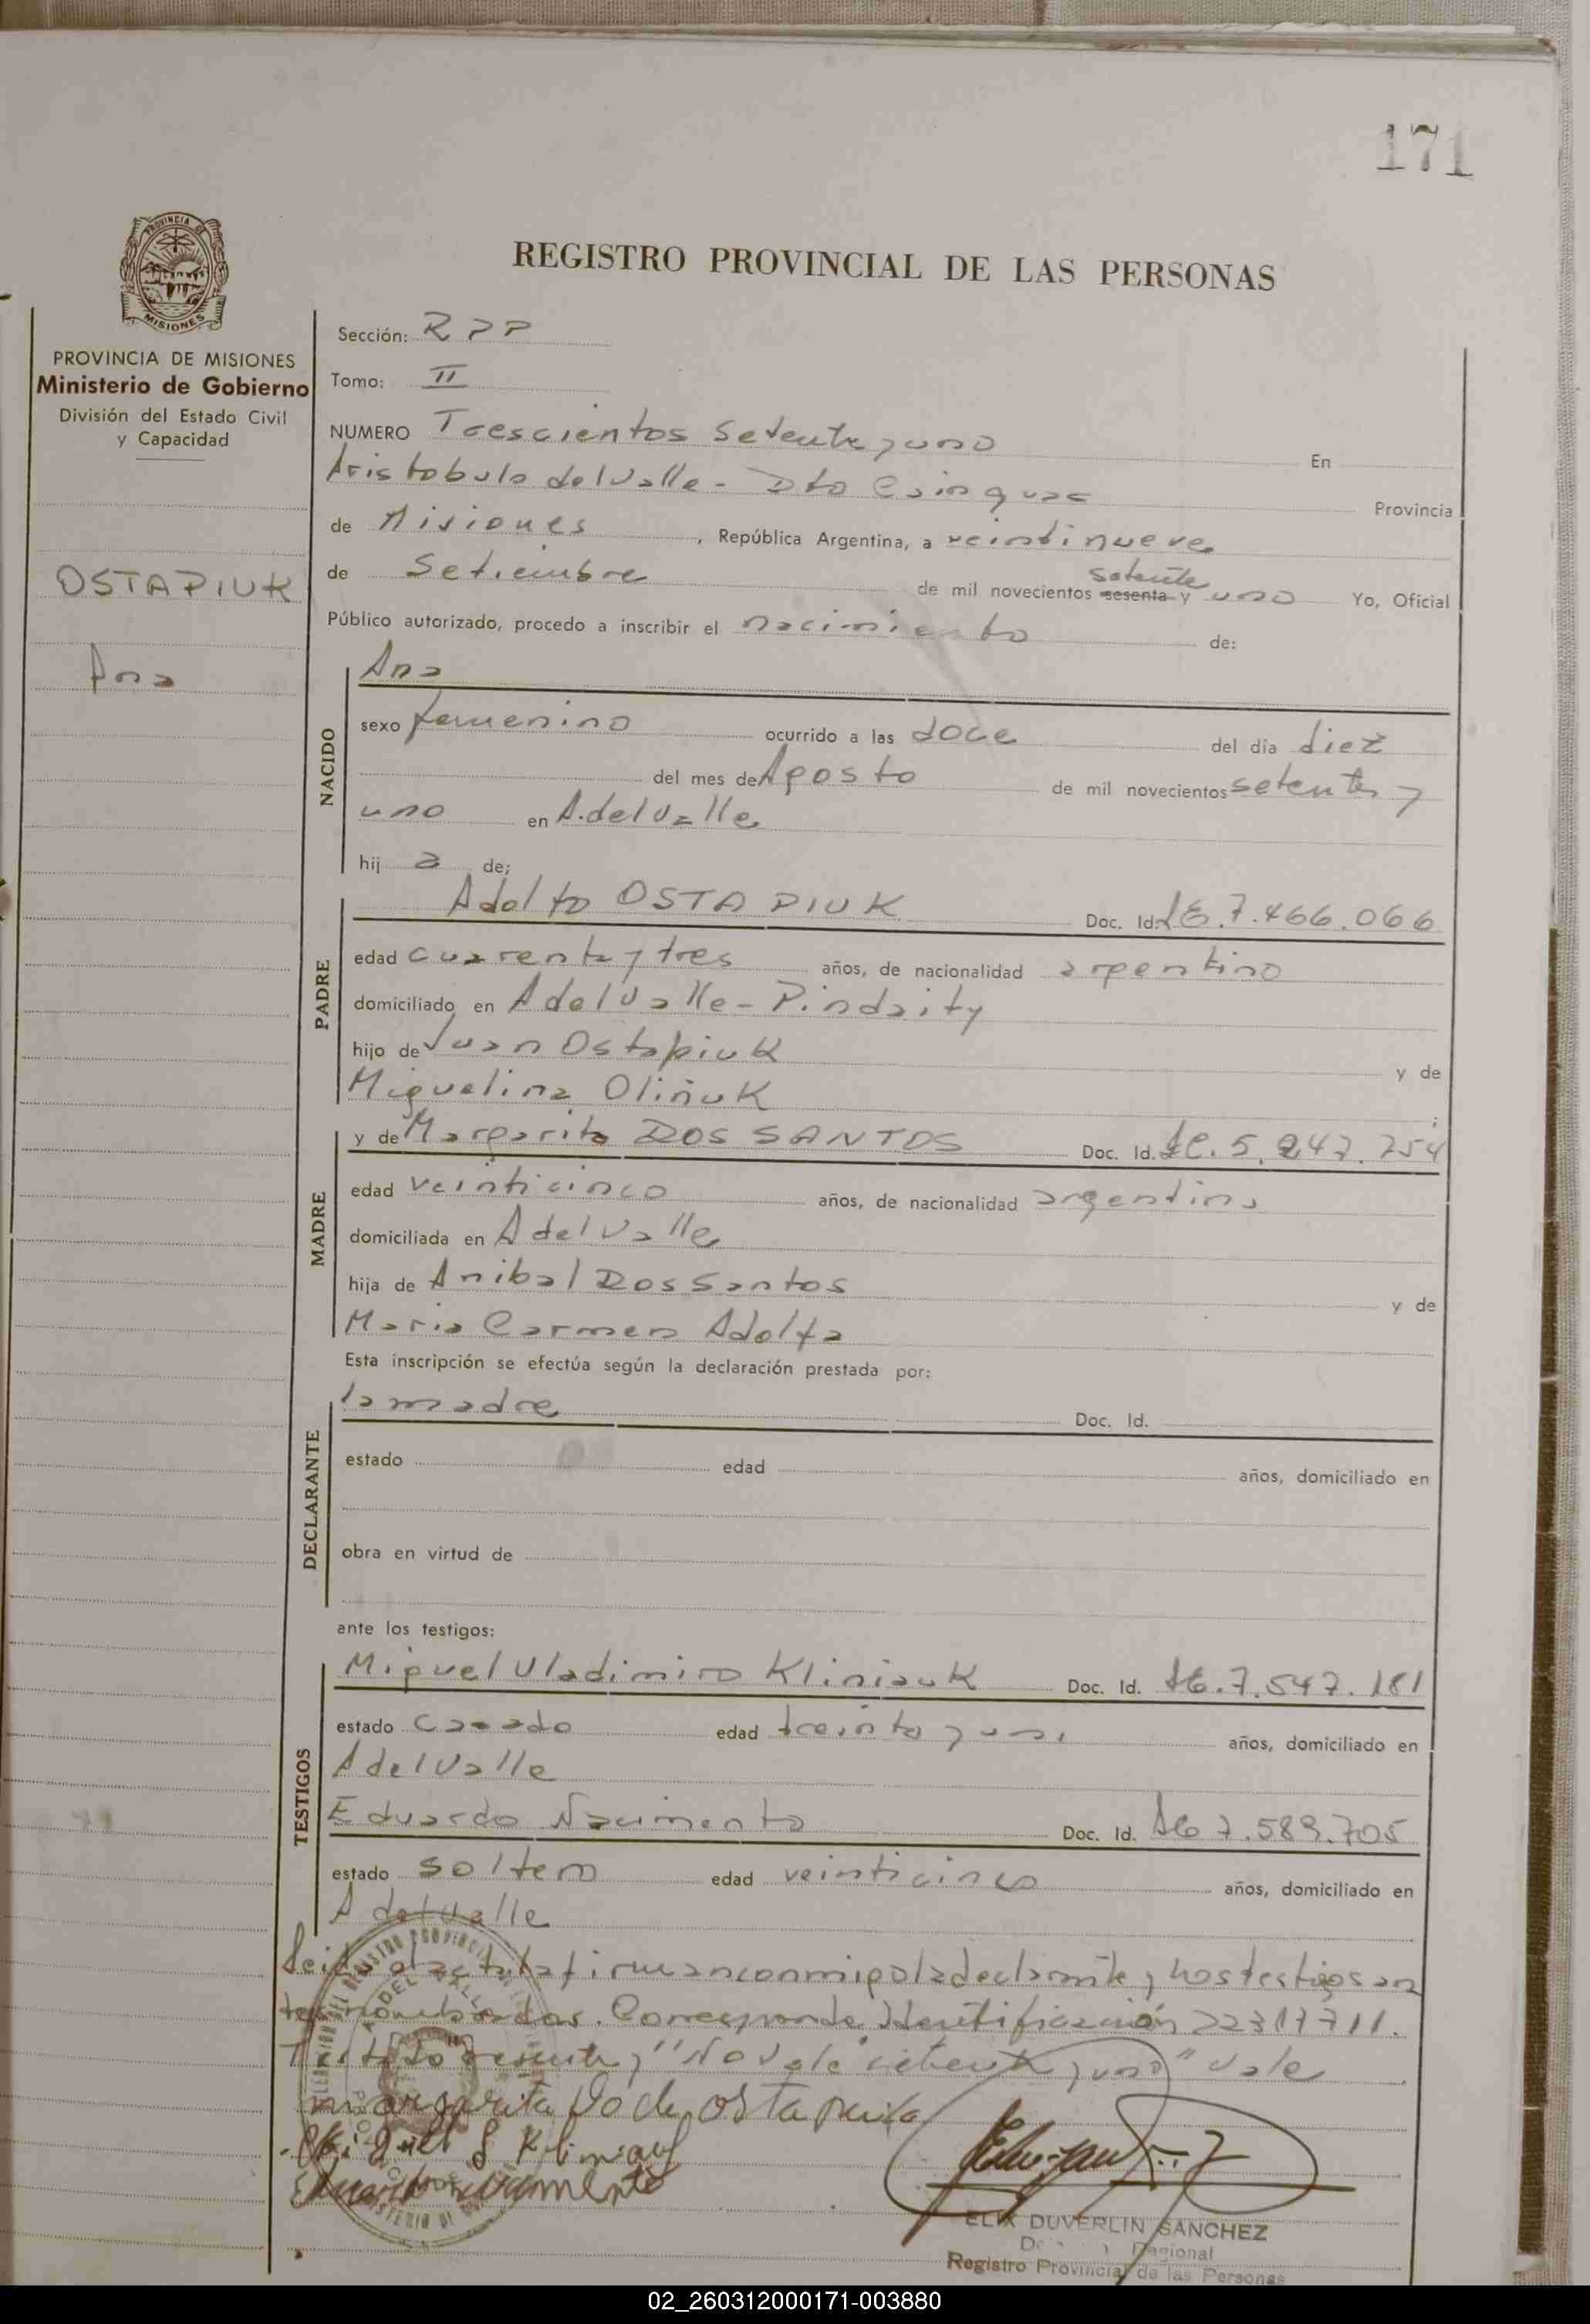 171
REGISTRO PROVINCIAL DE LAS PERSONAS
PROVINCIA DE
MISIONES
PROVINCIA DE MISIONES
Ministerio de Gobierno
División del Estado Civil
y Capacidad
OSTAPIUK
Ana
Sección: RPP
Tomo: II
NUMERO Trescientos Setenta y uno En
Aristobulo del Valle - Dto Cainguas Provincia
de Misiones, República Argentina, a veintinueve
de Setiembre de mil novecientos sesenta y setenta uno Yo, Oficial
Público autorizado, procedo a inscribir el nacimiento de:
NACIDO
Ana
sexo femenino ocurrido a las doce del día diez
del mes de Agosto de mil novecientos setenta y
uno en A. del Valle
hij a de;
PADRE
Adolfo OSTAPIUK Doc. Id. LE. 7.466.066
edad cuarenta y tres años, de nacionalidad argentino
domiciliado en A del Valle - Pindaity
hijo de Juan Ostapiuk y de
Miguelina Oliñuk ;
MADRE
y de Margarita DOS SANTOS Doc. Id. LC. 5.247.754
edad veinticinco años, de nacionalidad argentina
domiciliada en A del Valle
hija de Anibal Dos Santos y de
Maria Carmen Adolfa
Esta inscripción se efectúa según la declaración prestada por:
DECLARANTE
la madre Doc. Id.
estado edad años, domiciliado en
obra en virtud de
ante los testigos:
TESTIGOS
Miguel Uladimiro Kliniauk Doc. Id. LE. 7.547.181
estado casado edad treinta y uno años, domiciliado en
A del Valle
Eduardo Nacimento Doc. Id. LE 7.589.705
estado soltero edad veinticinco años, domiciliado en
A del Valle
Leida el acta la firman conmigo la declarante y los testigos an
tes nombrados. Corresponde Identificación 22317711.
Testado sesenta y "No vale setenta y uno" vale
Margarita Do de
Eduardo Nacimento
ELIX DUVERLIN SANCHEZ
Regional
Registro Provincial de las Personas
02_260312000171-003880